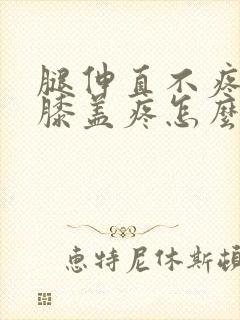 腿伸直不疼
膝盖疼怎麽
惠特尼休斯頓